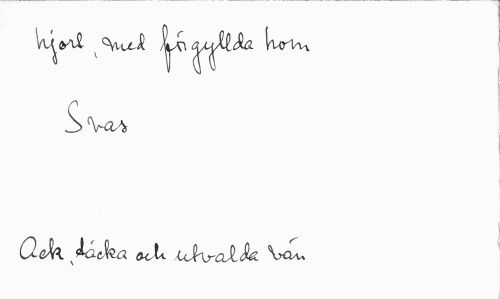 hjort, med förgyllda horn
Svas
Ack, täcka och utvalda vän